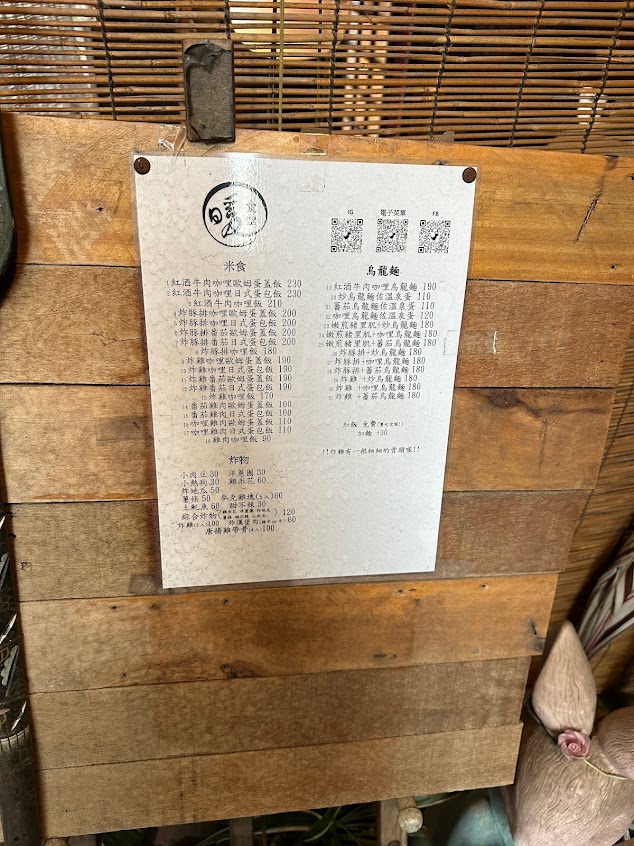 IG 電子菜單 FB
米食
1 紅酒牛肉咖哩歐姆蛋蓋飯 230
2 紅酒牛肉咖哩日式蛋包飯 230
3 紅酒牛肉咖哩飯 210
4 炸豚排咖哩歐姆蛋蓋飯 200
5 炸豚排咖哩日式蛋包飯 200
6 炸豚排番茄歐姆蛋蓋飯 200
7 炸豚排番茄日式蛋包飯 200
8 炸豚排咖哩飯 180
9 炸雞咖哩歐姆蛋蓋飯 190
10 炸雞咖哩日式蛋包飯 190
11 炸雞番茄歐姆蛋蓋飯 190
12 炸雞番茄日式蛋包飯 190
13 炸雞咖哩飯 170
14 番茄雞肉歐姆蛋蓋飯 100
15 番茄雞肉日式蛋包飯 100
16 咖哩雞肉歐姆蛋蓋飯 110
17 咖哩雞肉日式蛋包飯 110
18 雞肉咖哩飯 90
炸物
小肉豆 30 洋蔥圈 30
小熱狗 30 雞米花 60
炸地瓜 50
薯條 50 麥克雞塊(5入)60
土魷魚 60 甜不辣 30
綜合炸物 120
炸雞(5入)100 炸漢堡肉 60
唐揚雞帶骨 100
烏龍麵
19 紅酒牛肉咖哩烏龍麵 190
20 炒烏龍麵佐溫泉蛋 110
21 蕃茄烏龍麵佐溫泉蛋 110
22 咖哩烏龍麵佐溫泉蛋 120
23 嫩煎豬里肌+炒烏龍麵 180
24 嫩煎豬里肌+咖哩烏龍麵 180
25 嫩煎豬里肌+蕃茄烏龍麵 180
26 炸豚排+炒烏龍麵 180
27 炸豚排+咖哩烏龍麵 180
28 炸豚排+蕃茄烏龍麵 180
29 炸雞 +炒烏龍麵 180
30 炸雞 +咖哩烏龍麵 180
31 炸雞 +蕃茄烏龍麵 180
加飯 免費
加麵 +30
!!炸雞有一根細細的骨頭喔!!